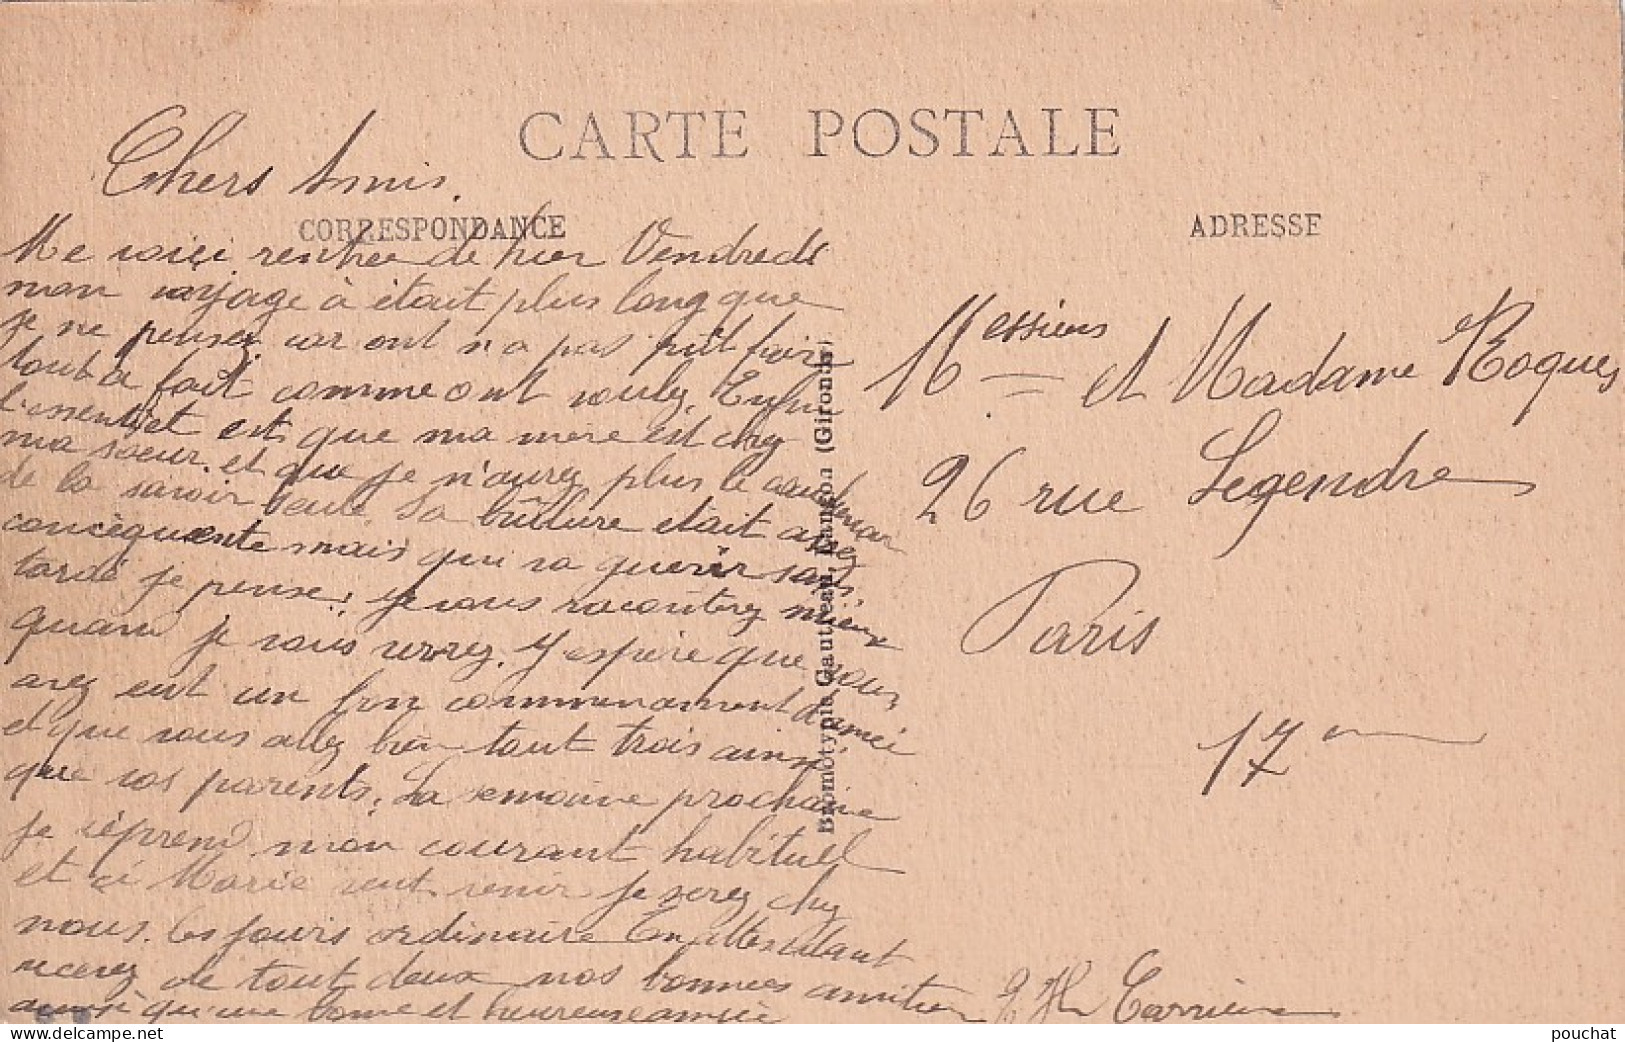 CARTE POSTALE
Chers Amis.
CORRESPONDANCE
Me voici rentrée de hier Vendredi
mon voyage à était plus long que
je ne pensez car ont n'a pas put faire
tout à fait comme ont voulez. Enfin
l'essentiet est que ma mère est chez
ma soeur. et que je n'aurez plus le cauchemar
de la savoir seule. Sa brûlure était assez
concéquente mais qui va guérir sans
tardé je pense. je vous racontrez mieux
quand je vous verrez. J'espère que vous
avez eut un bon commencement d'année
et que vous allez bien tout trois ainsi
que vos parents. La semaine prochaine
je réprend mon courant habituel
et ci Marie veut venir je serez chez
nous. les jours ordinaire En attendant
recevez de tout deux nos bonnes amitiés
ainsi qu'une bonne et heureuse année
Carrière
Bromotypie Gautreau, Langon (Gironde)
ADRESSE
Messieurs et Madame Roques
26 rue Legendre
Paris
17 me
pouchat